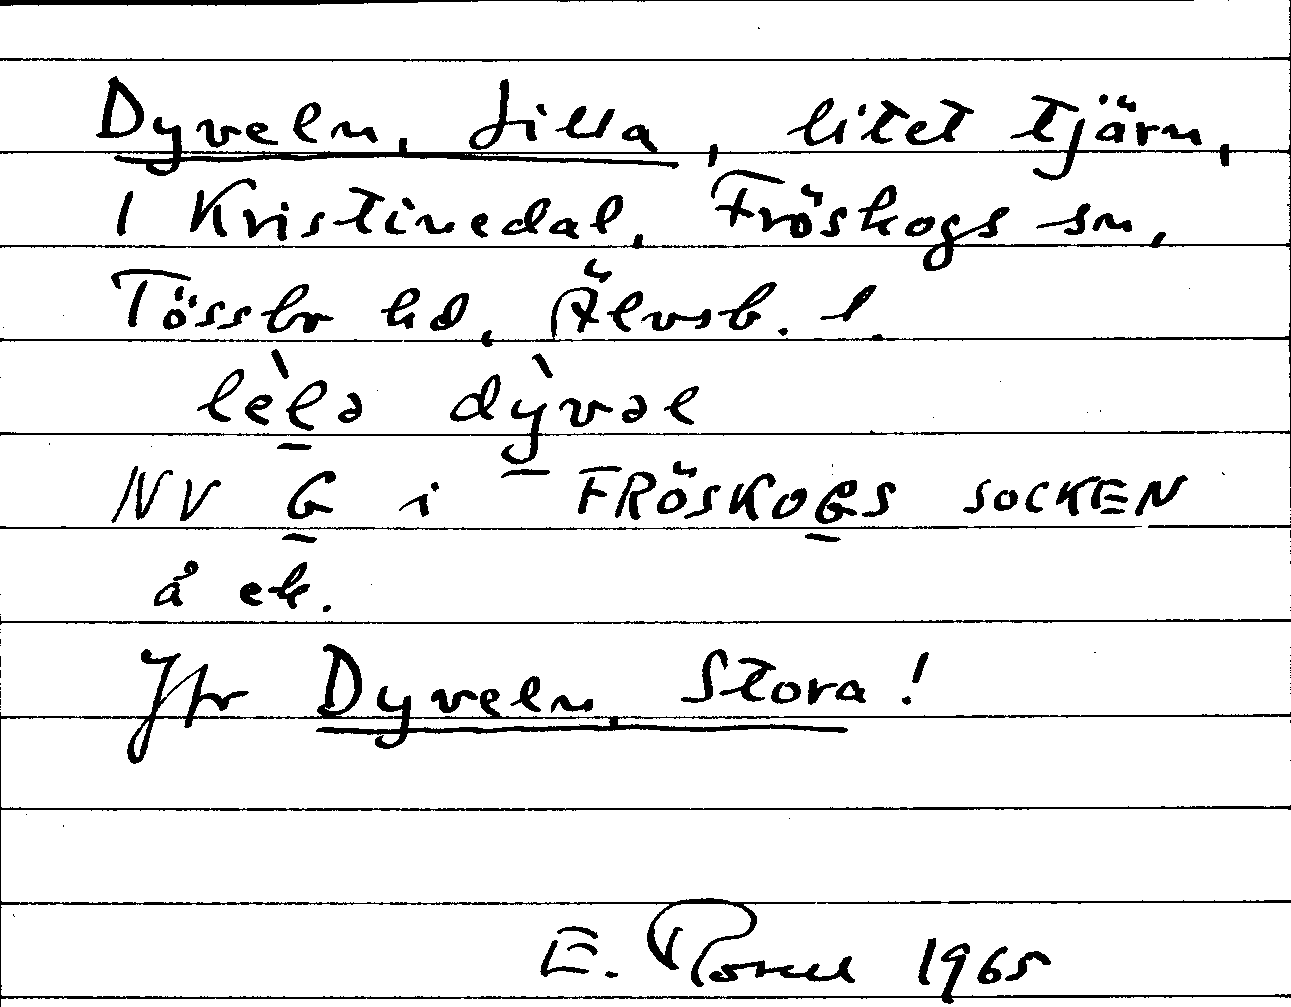 Dyveln, Lilla, litet tjärn,
i Kristinedal, Fröskogs sn,
Tössbo hd, Älvsb. l.
lèlə dỳvəl
NV G i FRÖSKOGS SOCKEN
å ek.
Jfr Dyveln, Stora!
E. 1965